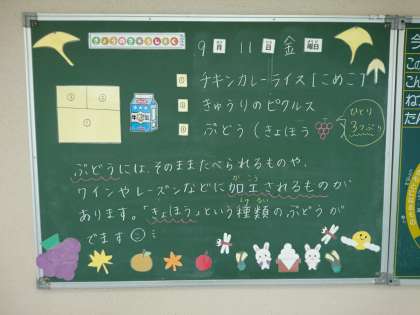 きょうのきゅうしょく
9月11日金曜日
① チキンカレーライス[こめこ]
② きゅうりのピクルス
③ ぶどう(きょほう) ひとり3つぶ
③ ②
①
ぶどうには、そのままたべられるものや、
ワインやレーズンなどに加工されるものが
あります。「きょほう」という種類のぶどうが
でます